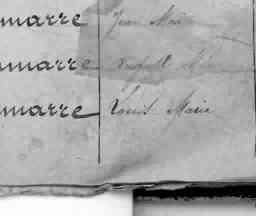 marre Jean Marie
marre
marre Louis Marie